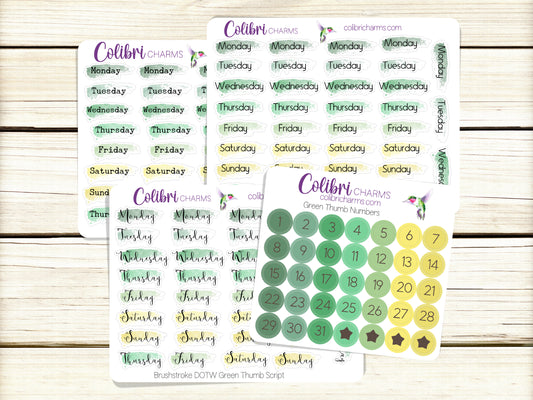 Colibri CHARMS
Monday Monday
Tuesday Tuesday
Wednesday Wednesday
Thursday Thursday
Friday Friday
Saturday Saturday
Sunday
Thursday
Colibri CHARMS colibricharms.com
Monday Monday Monday Monday Monday
Tuesday Tuesday Tuesday Tuesday
Wednesday Wednesday Wednesday Wednesday
Thursday Thursday Thursday Thursday Tuesday
Friday Friday Friday Friday
Saturday Saturday Saturday Saturday
Sunday Sunday Sunday Sunday
Colibri CHARMS
Monday Monday
Tuesday Tuesday
Wednesday Wednesday
Thursday Thursday
Friday Friday
Saturday Saturday
Sunday Sunday
Thursday Friday Saturday Sunday
Brushstroke DOTW Green Thumb Script
Colibri CHARMS
colibricharms.com
Green Thumb Numbers
1 2 3 4 5 6 7
8 9 10 11 12 13 14
15 16 17 18 19 20 21
22 23 24 25 26 27 28
29 30 31